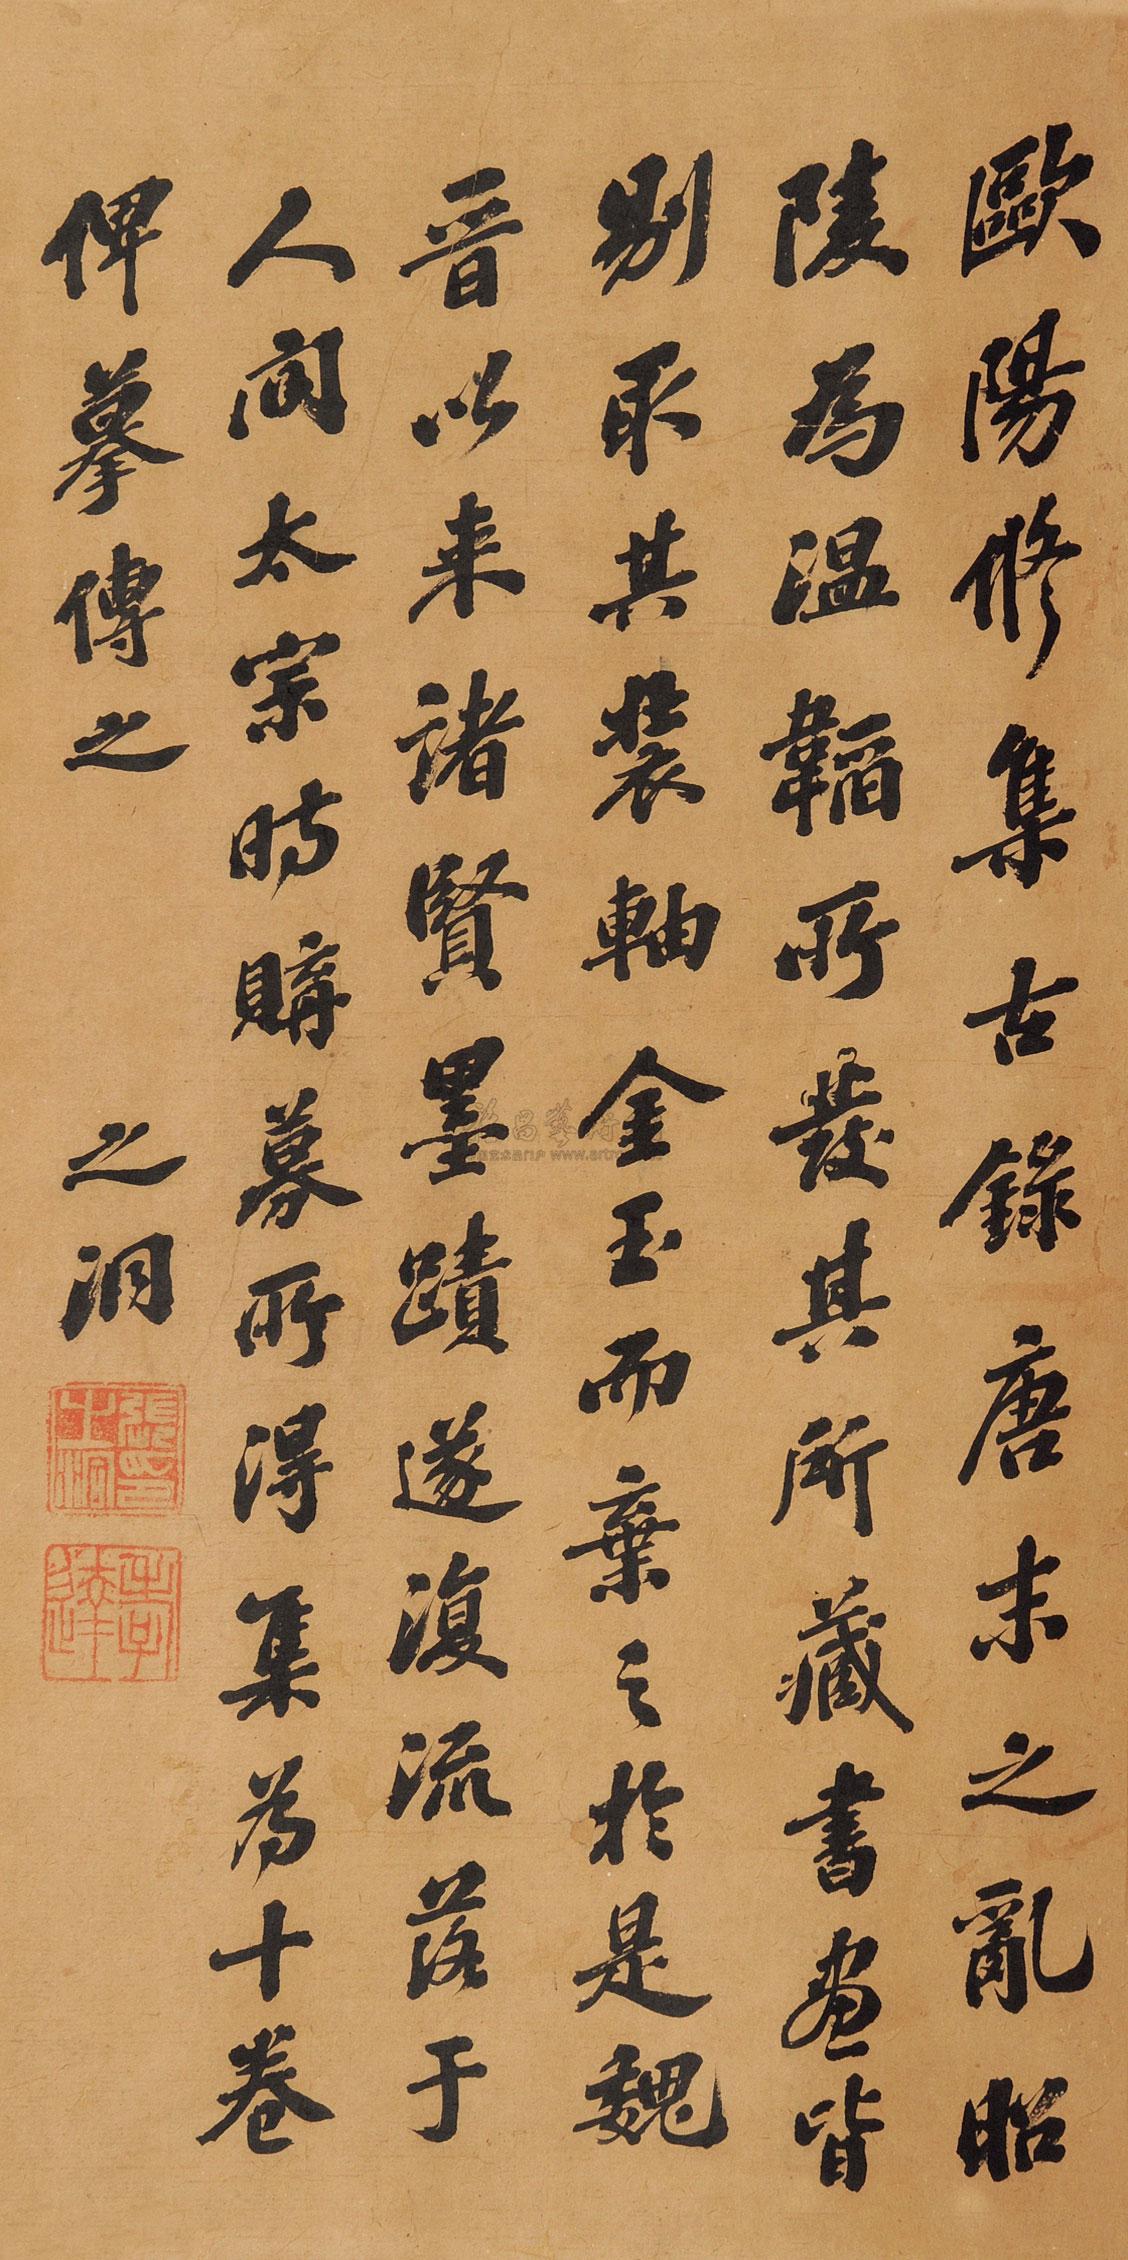 歐陽修集古錄唐末之亂昭
陵為温韜所發其所藏書画皆
剔取其裝軸金玉而棄之於是魏
晉以来諸賢墨蹟遂復流落于
人间太宗時購募所得集為十卷
俾摹傳之
之洞
張之洞印
孝達
www.artr